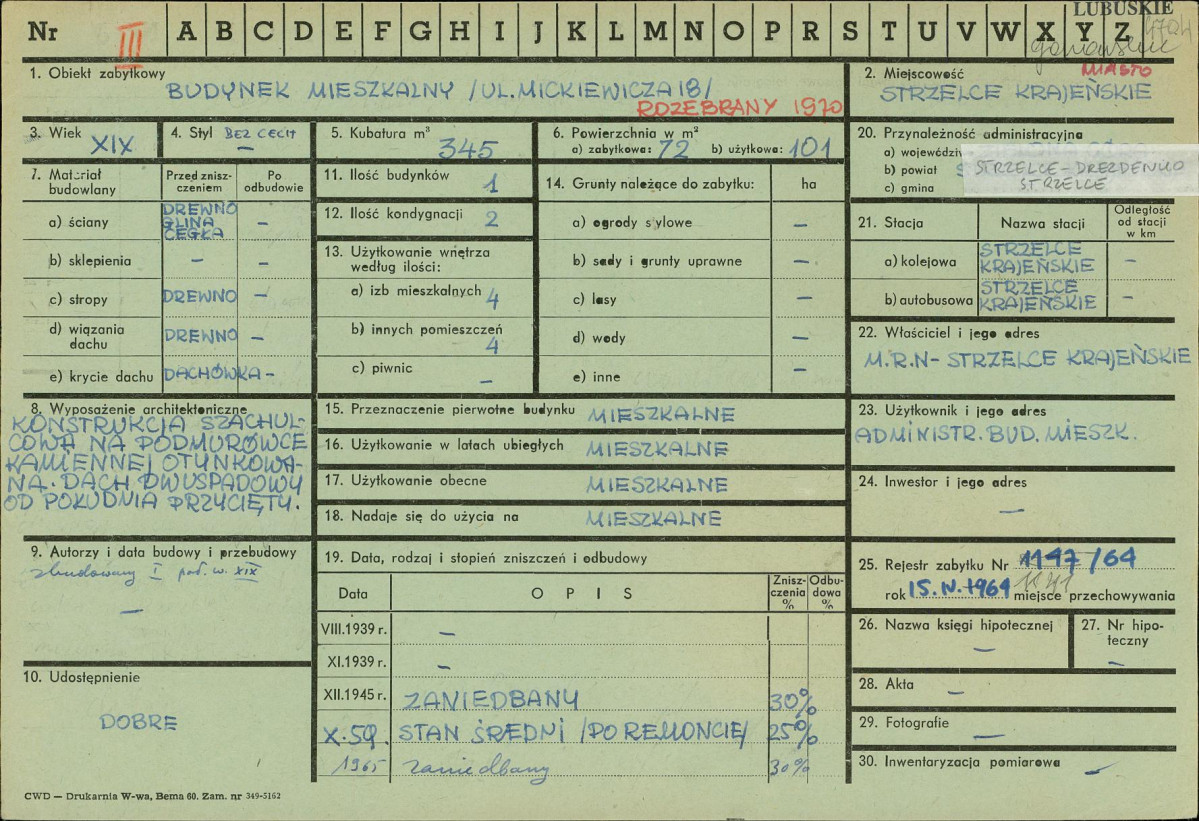 LUBUSKIE
Nr III A B C D E F G H I J K L M N O P R S T U V W X Y Z
MIASTO
1. Obiekt zabytkowy
BUDYNEK MIESZKALNY /UL. MICKIEWICZA 18/
ROZEBRANY 1970
2. Miejscowość
STRZELCE KRAJEŃSKIE
3. Wiek
XIX
4. Styl BEZ CECH
—
5. Kubatura m³
345
6. Powierzchnia w m²
a) zabytkowa: 72 b) użytkowa: 101
7. Materiał budowlany
Przed zniszczeniem
Po odbudowie
a) ściany DREWNO GLINA CEGŁA —
b) sklepienia — —
c) stropy DREWNO —
d) wiązania dachu DREWNO —
e) krycie dachu DACHÓWKA —
8. Wyposażenie architektoniczne
KONSTRUKCJA SZACHUL-
COWA NA PODMURÓWCE
KAMIENNEJ OTYNKOWA-
NA. DACH DWUSPADOWY
OD POŁUDNIA PRZYCIĘTY.
9. Autorzy i data budowy i przebudowy
zbudowany I poł. w. XIX
—
10. Udostępnienie
DOBRE
11. Ilość budynków 1
12. Ilość kondygnacji 2
13. Użytkowanie wnętrza
według ilości:
a) izb mieszkalnych 4
b) innych pomieszczeń
4
c) piwnic —
14. Grunty należące do zabytku: ha
a) ogrody stylowe —
b) sady i grunty uprawne —
c) lasy —
d) wody —
e) inne —
15. Przeznaczenie pierwotne budynku MIESZKALNE
16. Użytkowanie w latach ubiegłych MIESZKALNE
17. Użytkowanie obecne MIESZKALNE
18. Nadaje się do użycia na MIESZKALNE
19. Data, rodzaj i stopień zniszczeń i odbudowy
Data OPIS Zniszczenia % Odbudowa %
VIII.1939 r. —
XI.1939 r. —
XII.1945 r. ZANIEDBANY 30%
X.59. STAN ŚREDNI /PO REMONCIE/ 25%
1965 zaniedbany 30%
20. Przynależność administracyjna
a) wojewódz
b) powiat
c) gmina
STRZELCE-DREZDENKO
STRZELCE
21. Stacja Nazwa stacji Odległość od stacji w km
a) kolejowa STRZELCE KRAJEŃSKIE —
b) autobusowa STRZELCE KRAJEŃSKIE —
22. Właściciel i jego adres
M.R.N- STRZELCE KRAJEŃSKIE
23. Użytkownik i jego adres
ADMINISTR. BUD. MIESZK.
24. Inwestor i jego adres
—
25. Rejestr zabytku Nr 1147/64
rok 15.IV.1964 miejsce przechowywania
26. Nazwa księgi hipotecznej
—
27. Nr hipo-
teczny
—
28. Akta —
29. Fotografie
—
30. Inwentaryzacja pomiarowa —
CWD — Drukarnia W-wa, Bema 60. Zam. nr 349-5162